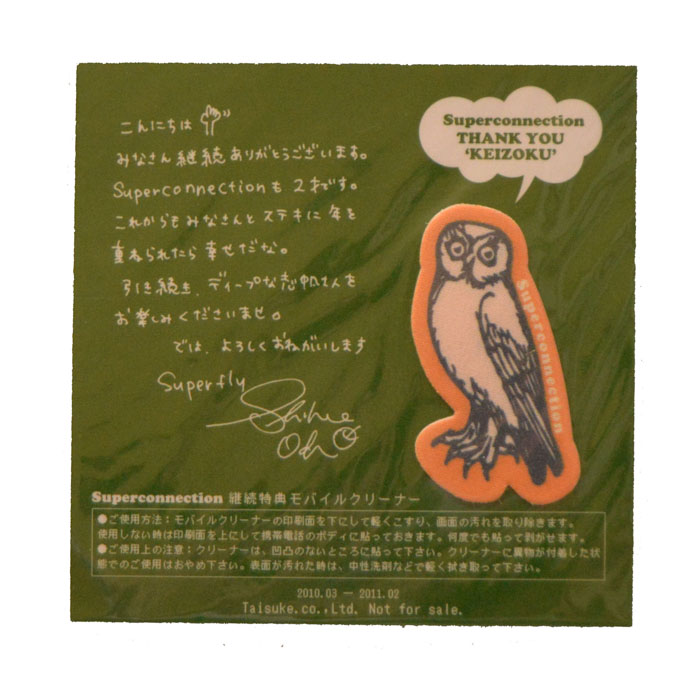 こんにちは
みなさん継続ありがとうございます。
Superconnectionも2才です。
これからもみなさんとステキに年を
重ねられたら幸せだな。
引き続き、ディープな志帆さんを
お楽しみくださいませ。
では、よろしくおねがいします
Superfly
Superconnection
THANK YOU
'KEIZOKU'
Superconnection
Superconnection 継続特典モバイルクリーナー
●ご使用方法：モバイルクリーナーの印刷面を下にして軽くこすり、画面の汚れを取り除きます。
使用しない時は印刷面を上にして携帯電話のボディに貼っておきます。何度でも貼って剥がせます。
●ご使用上の注意：クリーナーは、凹凸のないところに貼って下さい。クリーナーに異物が付着した状
態でのご使用はおやめ下さい。表面が汚れた時は、中性洗剤などで軽く拭き取って下さい。
2010.03 ― 2011.02
Taisuke.co.,Ltd. Not for sale.